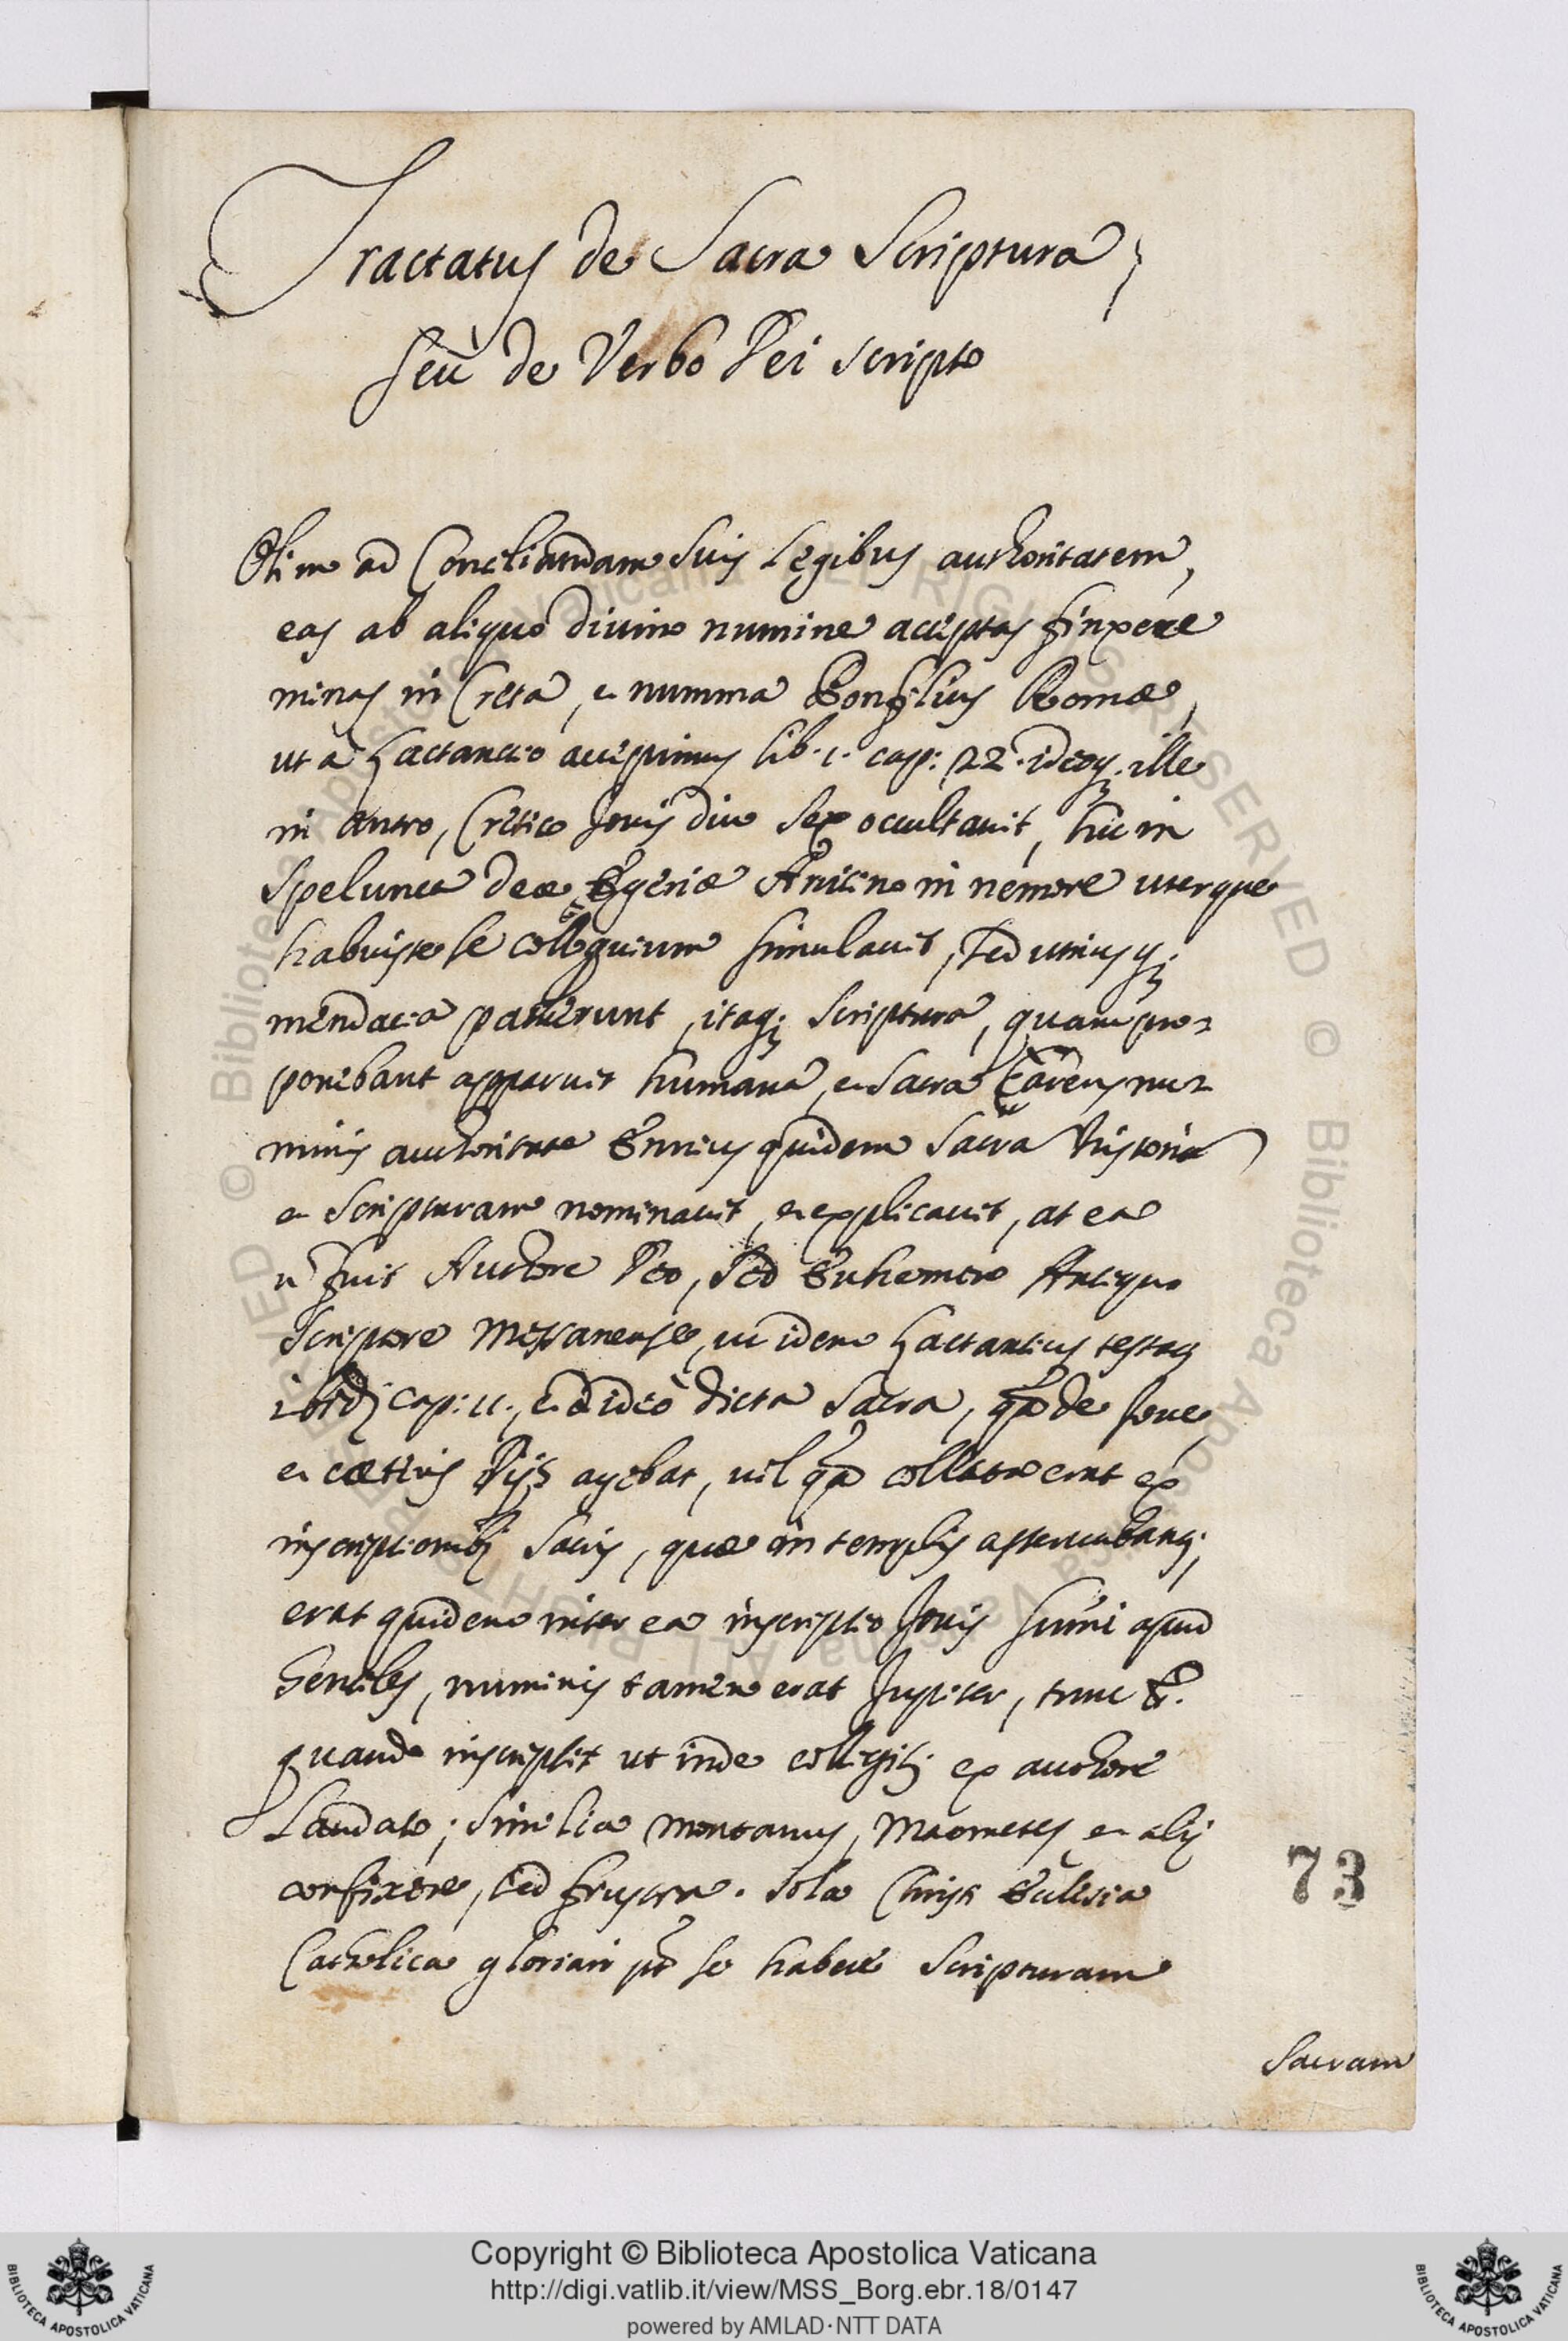 Tractatus de Sacra Scriptura,
seù de Verbo Dei scripto
Olim ad Conciliandam suis Legibus authoritatem,
eas ab aliquo divino numine acceptas finxere
minas in Creta, et numma Ponpilius Romæ,
ut a Lactantio accepimus lib. 1. cap: 22. ideoq; ille
in antro, Cretico Jovis diu se occultavit, hic in
spelunca deæ Egeriæ Aricino in nemore uterque
habuisse se colloquium simulavit, sed utriusq;
mendacia patuerunt, itaq; scriptura, quam pro-
ponebant apparuit humana, et sacra carens nu-
minis authoritate Ennius quidem sacra historia
et scripturam nominavit, et explicavit, at ea
n̄ fuit Authore Deo, sed Euhemero Antiquo
scriptore Messanense, ut idem Lactantius testatr
ibid; cap: 11., et ideò dicta sacra, qa de Jove,
et cæteris Dijs agebat, vel qa collecta erat ex
inscriptionib; sacris, quæ in templis asservabantr;
erat quidem inter ea inscriptio Jovis sum̄i apud
Gentiles, numinis tamen erat Jupiter, tunc
quando inscripsit ut inde colligitr ex authore
Laudato; similia montanus, Maometes et alij
confixere, sed frustra. sola Christi Ecclesia
Catholica gloriari pt se habere scripturam
73
sacram
Copyright © Biblioteca Apostolica Vaticana
http://digi.vatlib.it/view/MSS_Borg.ebr.18/0147
powered by AMLAD·NTT DATA